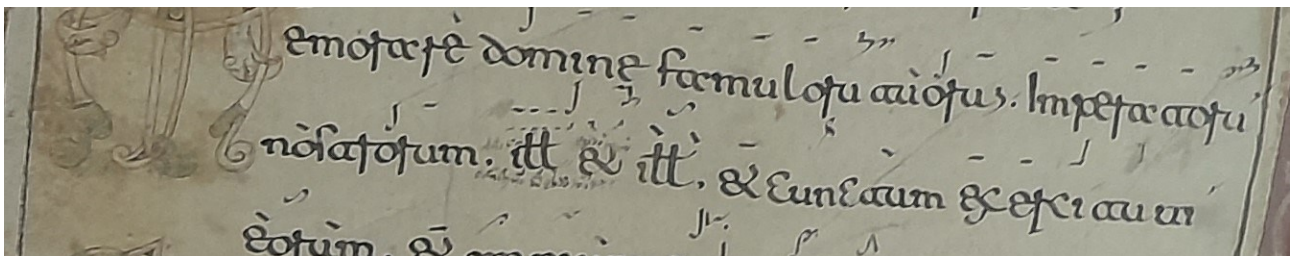 emorare domine famuloru tuorum. Imperatoru
nostrorum. ill & ill. & cunctum exercitum
eorum. &